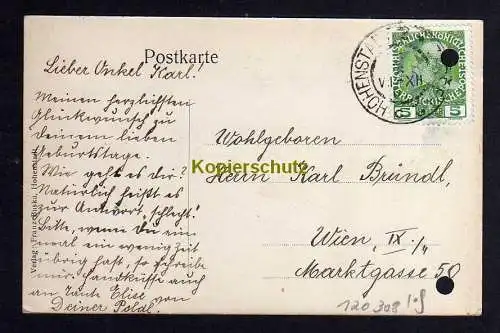 Postkarte
Lieber Onkel Karl!
Meinen herzlichsten
Glückwunsch zu
Deinem lieben
Geburtstage.
Wie geht es dir?
Natürlich heißt es
zur Antwort „schlecht".
Bitte, wenn Du ein-
mal ein wenig Zeit
übrig hast, so schreibe
mir. Handküsse auch
an Tante Elise von
Deiner Poldl.
Wohlgeboren
Herrn Karl Bründl,
Wien, IX./
Marktgasse 50
Kopierschutz
HOHENSTA
XII
5 5
Verlag v. Franz Hohenstadt
120 308